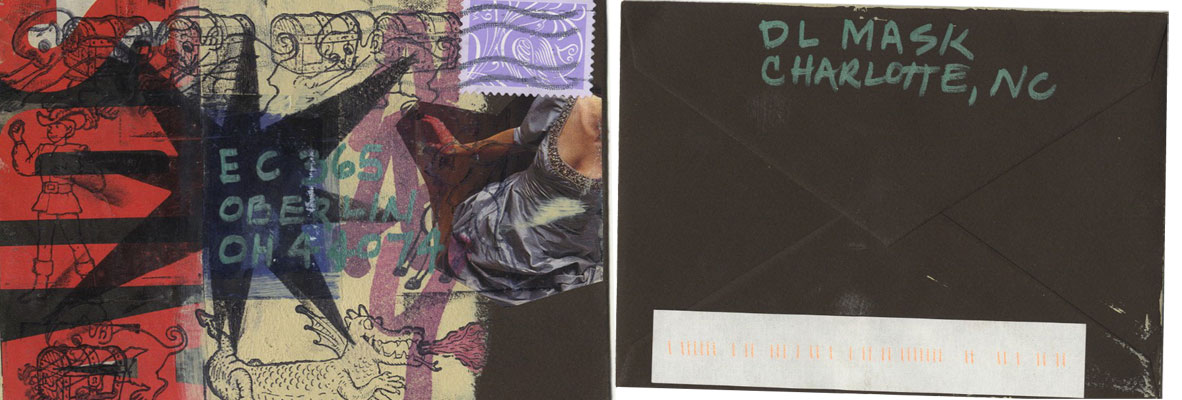 EC 365
OBERLIN
OH 44074
DL MASK
CHARLOTTE, NC